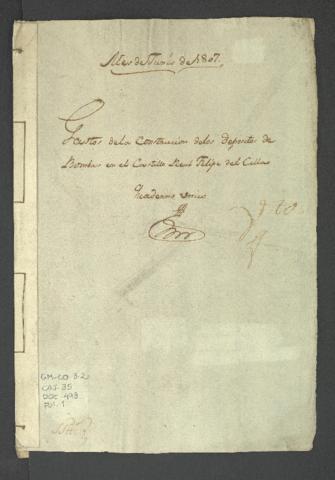 Mes de Junio de 1807.
Gastos de la Construccion de los Depositos de
Bombas en el Castillo Real Felipe del Callao
Quaderno unico
GM-CO 3.2
CAJ. 35
DOC 493
Fol. 1